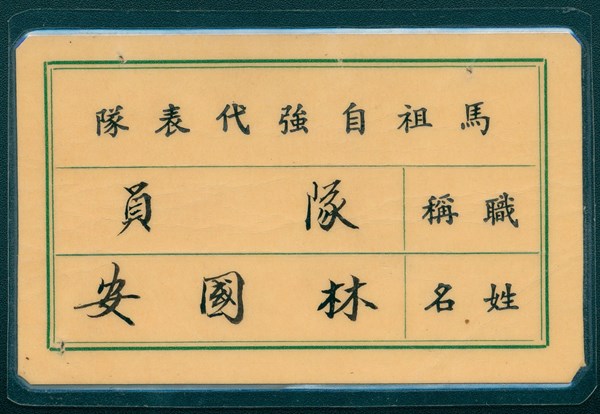 馬祖自強代表隊
職稱 隊員
姓名 林國安